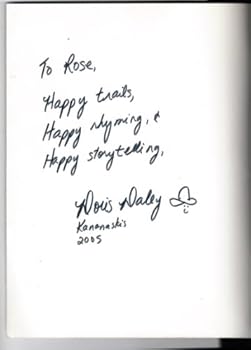 To Rose,
Happy trails,
Happy rhyming, &
Happy storytelling,
Doris Daley
Kananaskis
2005